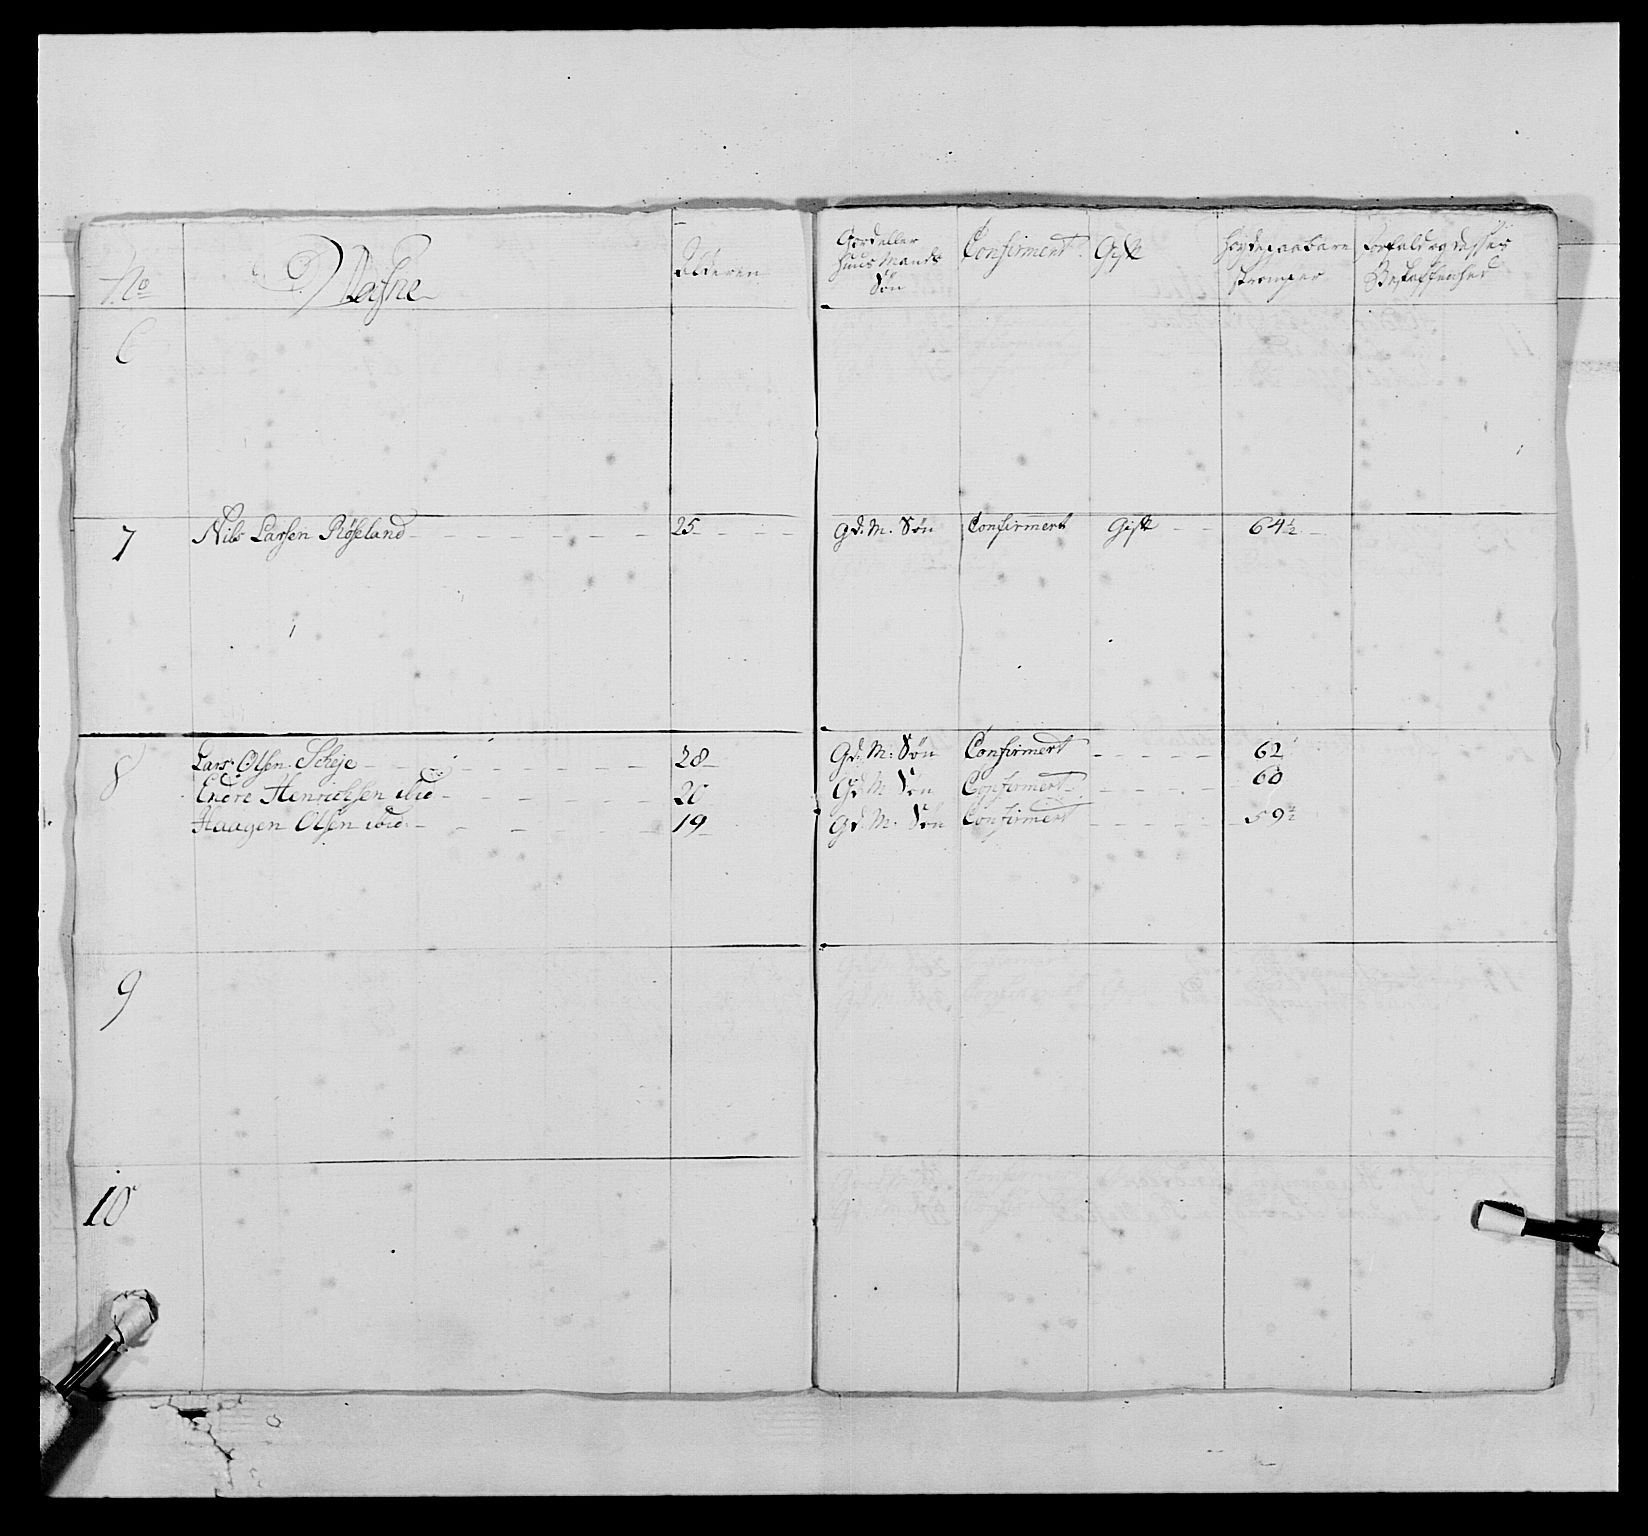 No
Nafne
Alderen
Gaard eller
Huus Mands
Søn
Confirmert
Gift
Høyde paa bare
Strømper
Forfald og desses
Beskaffenhed
6
7 Nils Larsen Røseland 25 Gd: M. Søn Confirmert Gift 64½
8 Lars Olsen Scheje 28 Gd: M: Søn Confirmert 62
Endre Henrichsen ibid 20 Gd: M Søn Confirmert 60
Haagen Olsen ibid 19 Gd: M: Søn Confirmert 59½
9
10